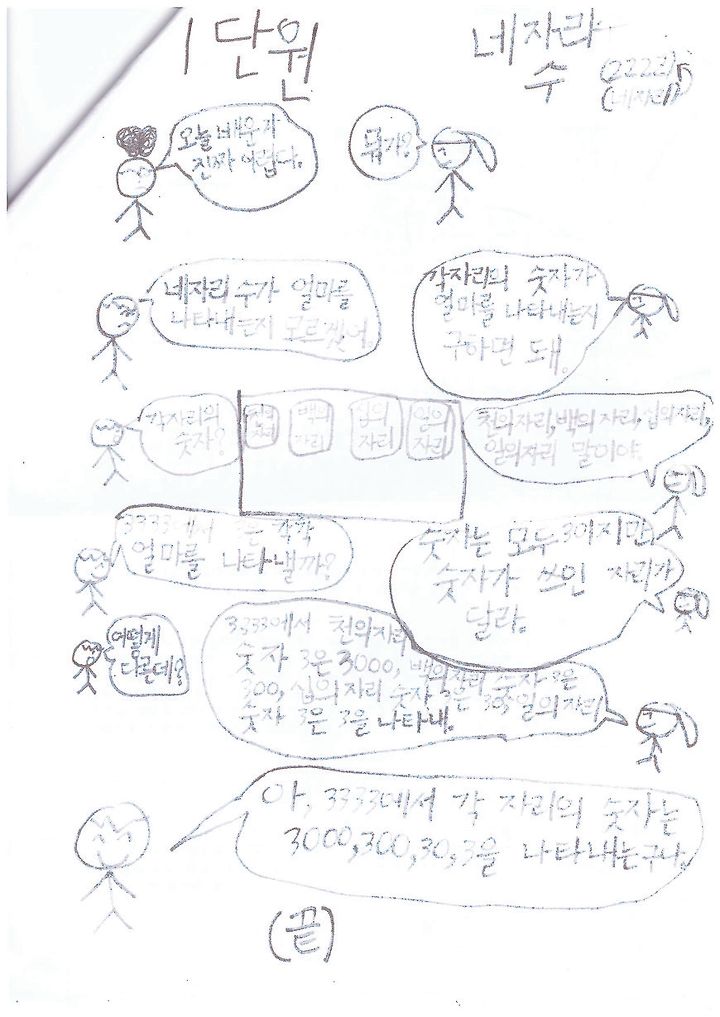 1 단원
네 자리
수
(2222)
(네자리)
오늘 배운거
진짜 어렵다.
뭐가?
네자리 수가 얼마를
나타내는지 모르겠어.
각자리의 숫자가
얼마를 나타내는지
구하면 돼.
각자리의
숫자?
천의
자리
백의
자리
십의
자리
일의
자리
천의자리, 백의 자리, 십의자리,
일의자리 말이야.
3333에서 3은 각각
얼마를 나타낼까?
숫자는 모두 3이지만
숫자가 쓰인 자리가
달라.
어떻게
다른데?
3333에서 천의자리
숫자 3은 3000, 백의자리 숫자 3은
300, 십의 자리 숫자 3은 30, 일의자리
숫자 3은 3을 나타내.
아, 3333에서 각 자리의 숫자는
3000, 300, 30, 3을 나타내는구나.
(끝)